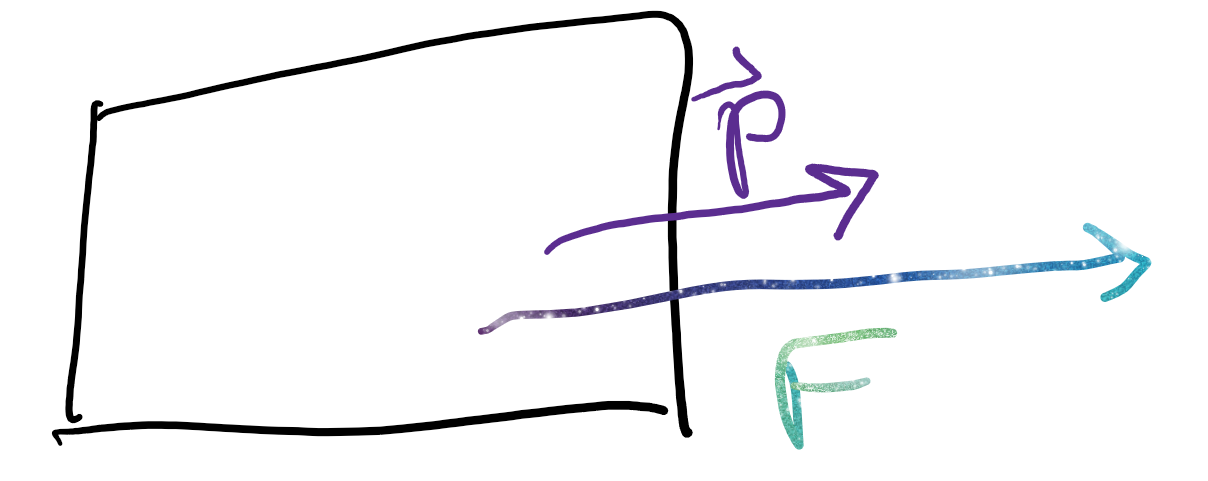 p⃗
F